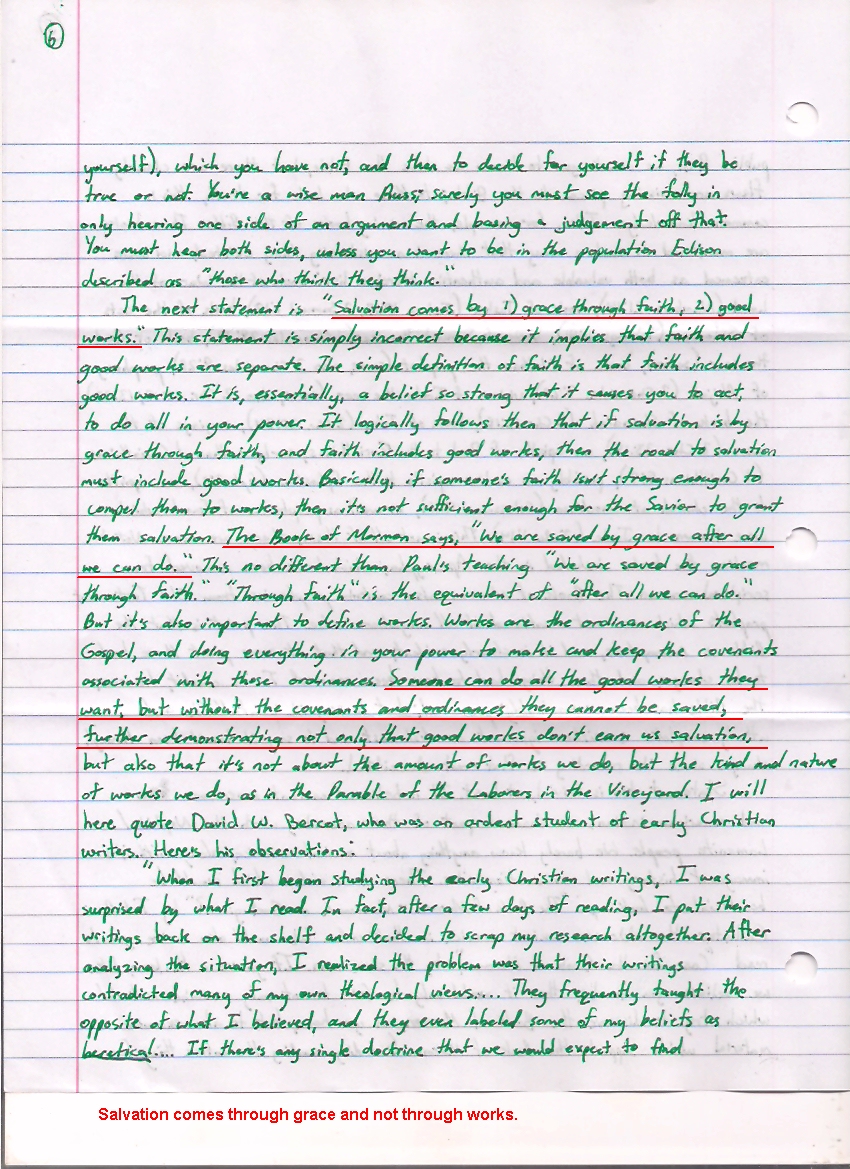 6
yourself), which you have not, and then to decide for yourself if they be
true or not. You're a wise man Russ; surely you must see the folly in
only hearing one side of an argument and basing a judgement off that.
You must hear both sides, unless you want to be in the population Edison
described as "those who think they think."
The next statement is "Salvation comes by 1) grace through faith, 2) good
works." This statement is simply incorrect because it implies that faith and
good works are separate. The simple definition of faith is that faith includes
good works. It is, essentially, a belief so strong that it causes you to act,
to do all in your power. It logically follows then that if salvation is by
grace through faith, and faith includes good works, then the road to salvation
must include good works. Basically, if someone's faith isn't strong enough to
compel them to works, then it's not sufficient enough for the Savior to grant
them salvation. The Book of Mormon says, "We are saved by grace after all
we can do." This no different than Paul's teaching "We are saved by grace
through faith." "Through faith" is the equivalent of "after all we can do."
But it's also important to define works. Works are the ordinances of the
Gospel, and doing everything in your power to make and keep the covenants
associated with those ordinances. Someone can do all the good works they
want, but without the covenants and ordinances they cannot be saved,
further demonstrating not only that good works don't earn us salvation,
but also that it's not about the amount of works we do, but the kind and nature
of works we do, as in the Parable of the Laborers in the Vineyard. I will
here quote David W. Bercot, who was an ardent student of early Christian
writers. Here's his observations:
"When I first began studying the early Christian writings, I was
surprised by what I read. In fact, after a few days of reading, I put their
writings back on the shelf and decided to scrap my research altogether. After
analyzing the situation, I realized the problem was that their writings
contradicted many of my own theological views.... They frequently taught the
opposite of what I believed, and they even labeled some of my beliefs as
heretical.... If there's any single doctrine that we would expect to find
Salvation comes through grace and not through works.